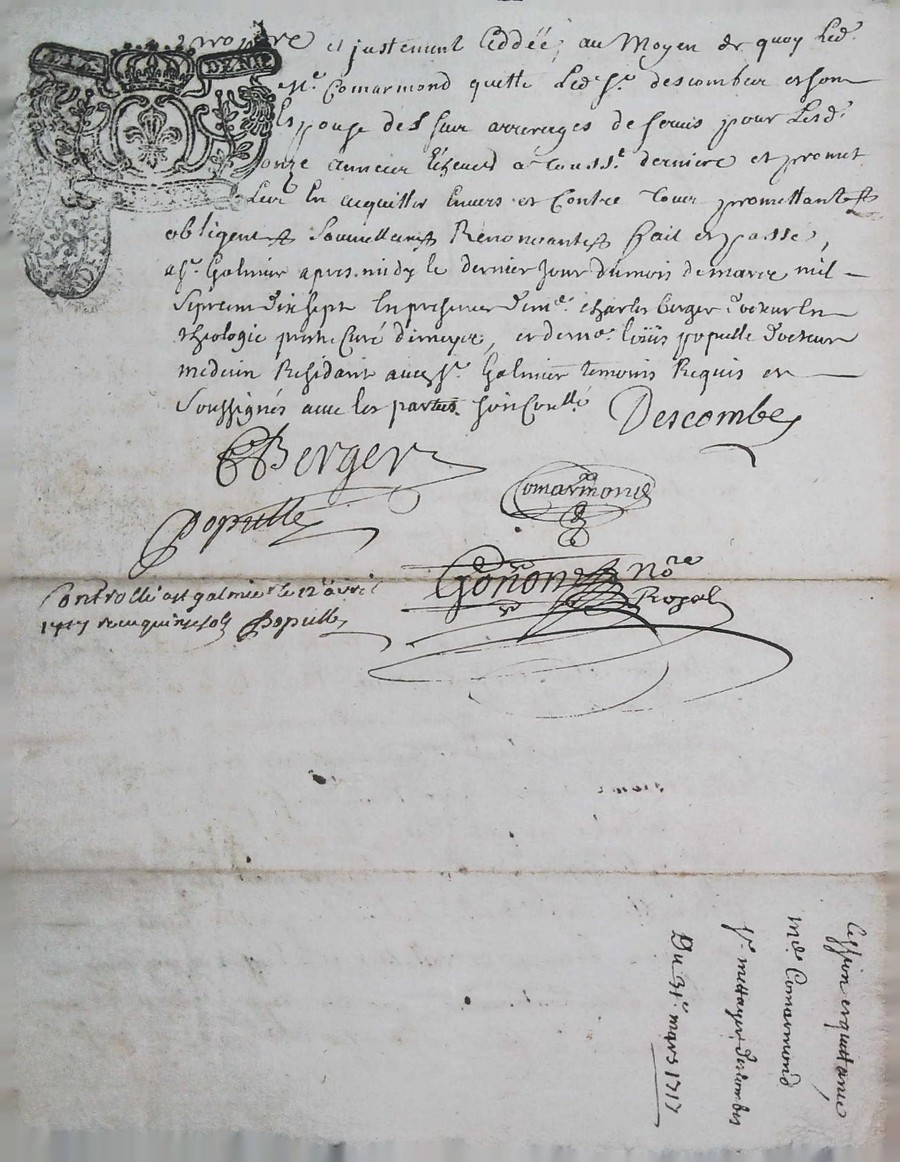 et justement Ceddée, au Moyen de quoy Led.
Comarmond quitte Led. Sr. descombes et son
Espouse desd. arrerages de servis pour Lesd.
onze années Echeues a Touss.t derniere et promet
Leur En acquitter Envers et Contre Tous promettants
obligents Soumettants Renonceants fait et passé,
a St. Galmier apres midy le dernier Jour du mois de mars mil
Sept cent dix sept En presence de me. charles berger Docteur En
theologie prestre Curé, et de mr. loüis populle Docteur
medecin Residant aud. St. Galmier temoins Requis et
Soussignés avec les parties
Descombes
CBerger
Comarmond
Populle
Gonon nore
Royal
Controllé a st galmier le 12e avril
1717 recu quinze sols Populle
Cession et quittance
me Comarmond
Sr. mettayer descombes
Du 31e. mars 1717